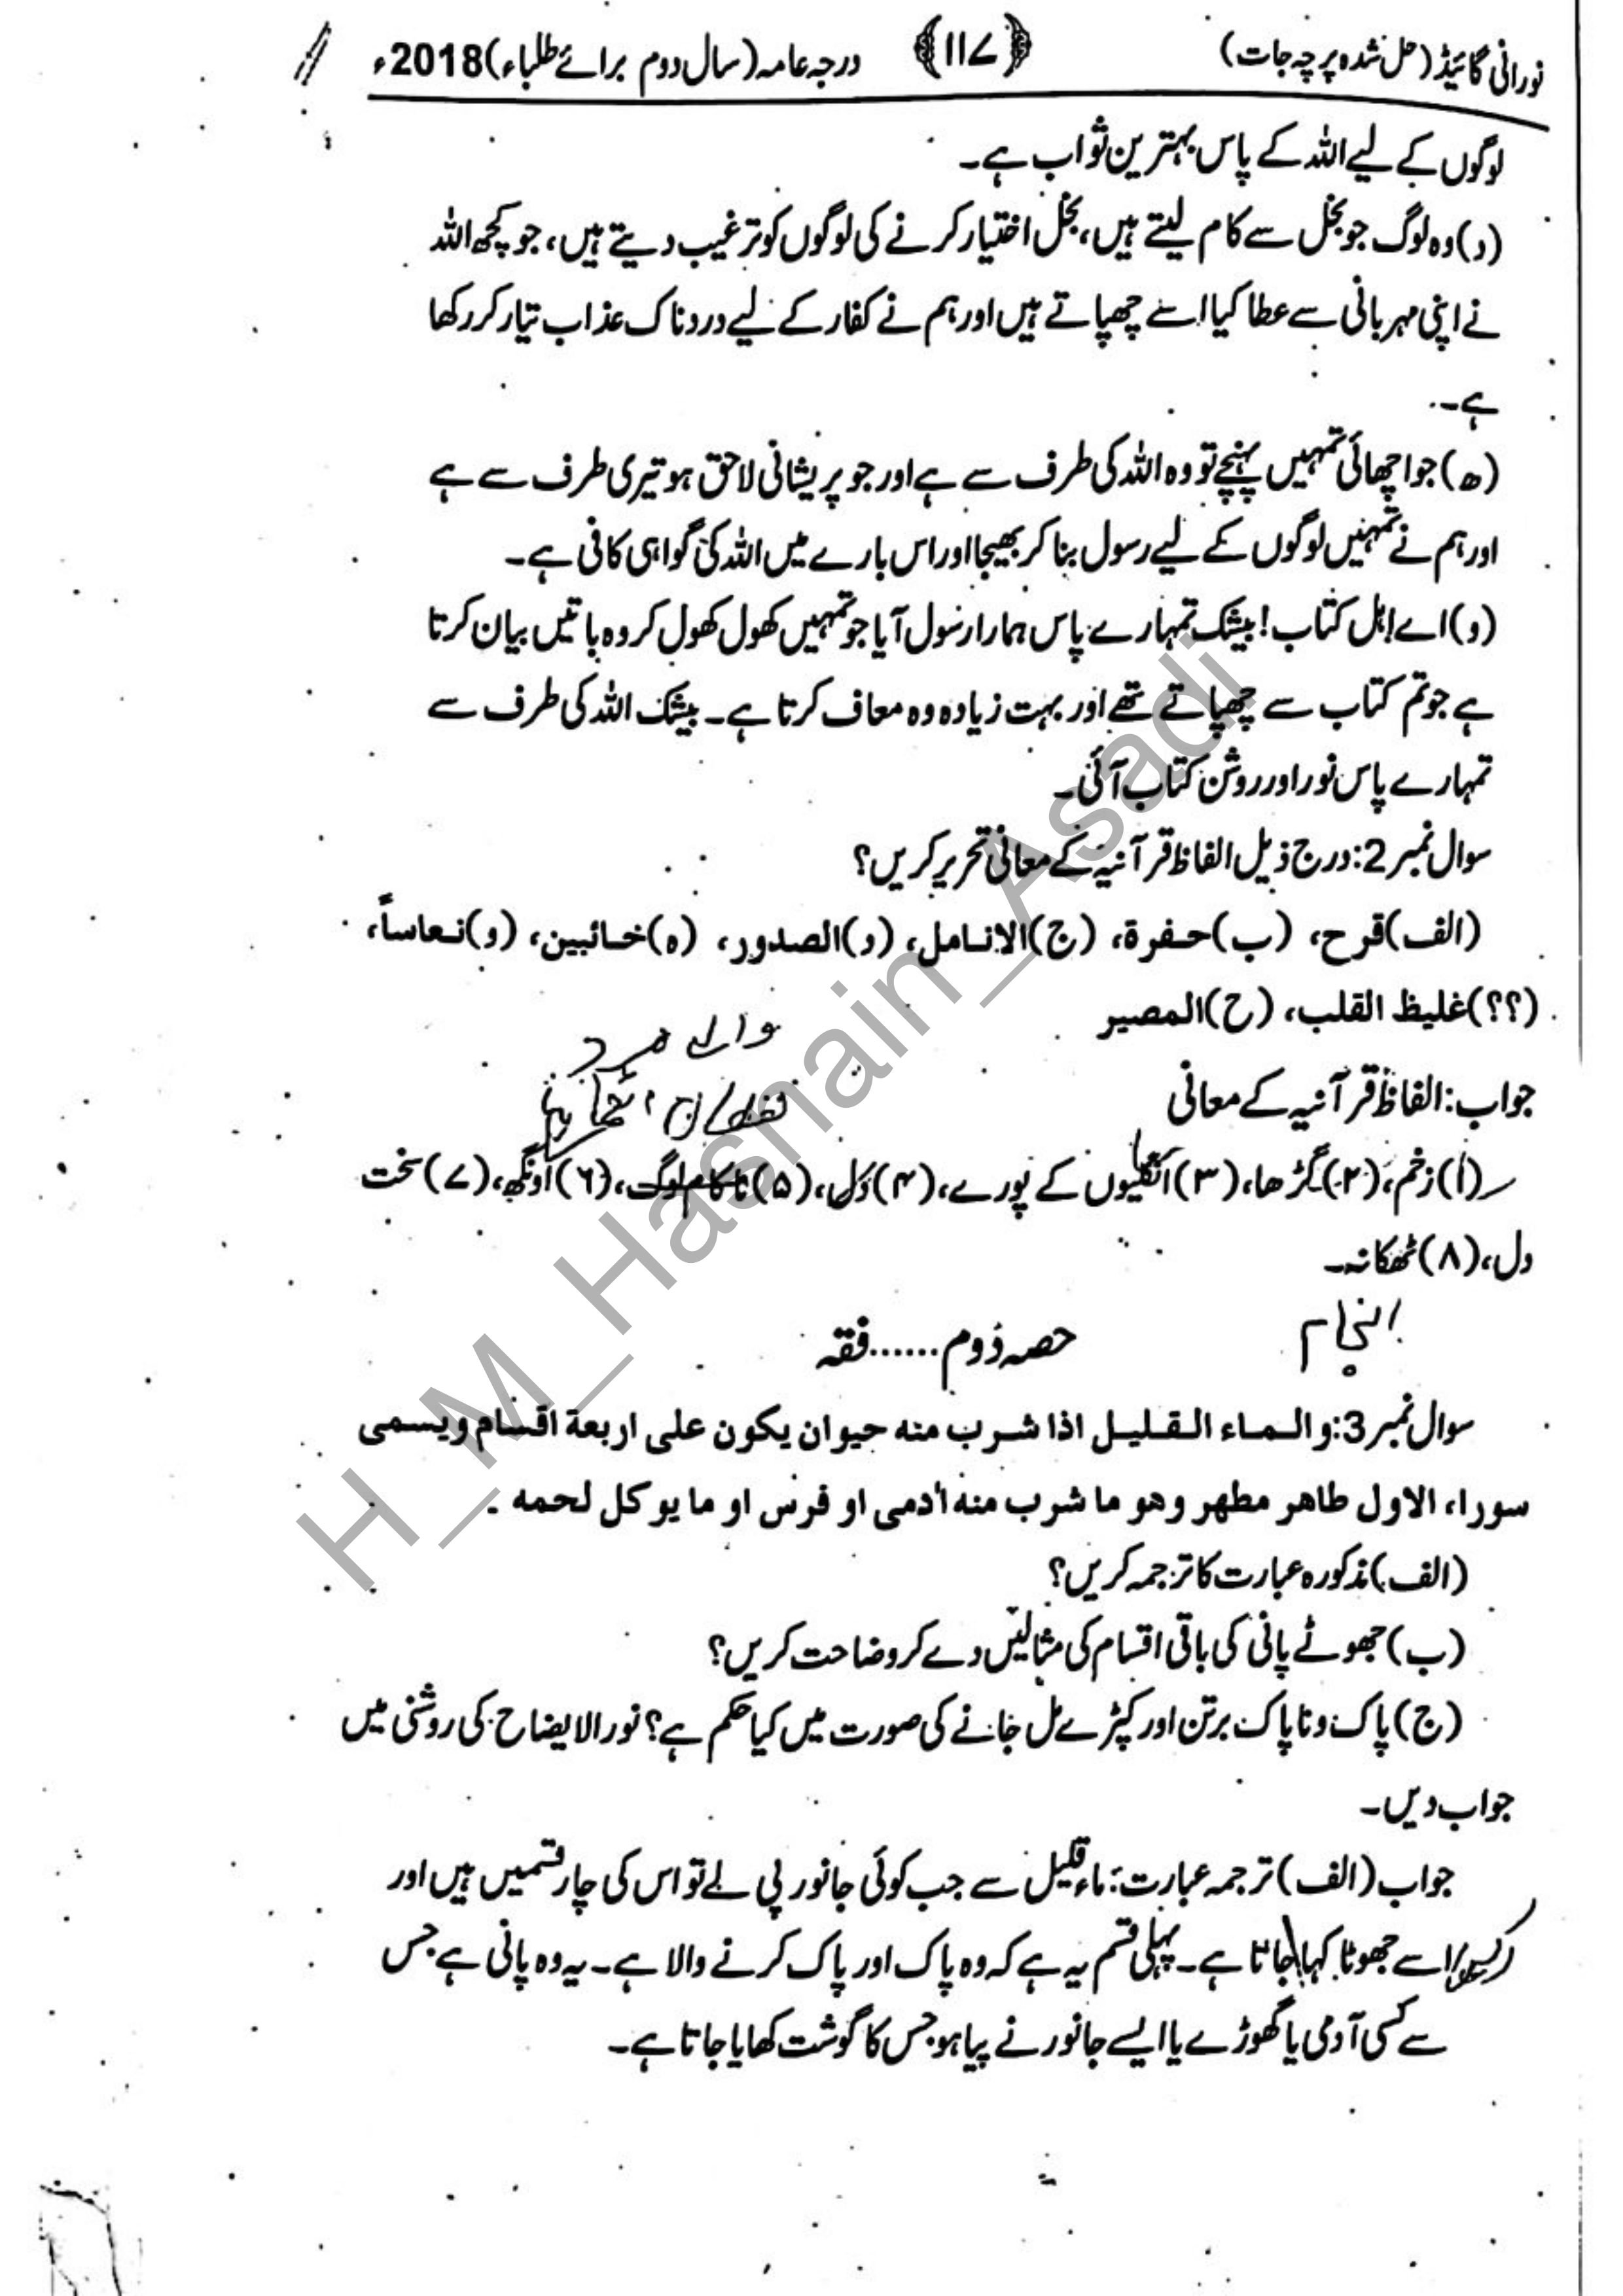 نورانی گائیڈ (حل شدہ پرچہ جات) ﴿۱۱۷﴾ درجہ عامہ (سال دوم برائے طلباء) 2018ء
لوگوں کے لیے اللہ کے پاس بہترین ثواب ہے۔
(د) وہ لوگ جو بخل سے کام لیتے ہیں، بخل اختیار کرنے کی لوگوں کو ترغیب دیتے ہیں، جو کچھ اللہ
نے اپنی مہربانی سے عطا کیا اسے چھپاتے ہیں اور ہم نے کفار کے لیے دردناک عذاب تیار کر رکھا
ہے۔
(ھ) جو اچھائی تمہیں پہنچے تو وہ اللہ کی طرف سے ہے اور جو پریشانی لاحق ہو تیری طرف سے ہے
اور ہم نے تمہیں لوگوں کے لیے رسول بنا کر بھیجا اور اس بارے میں اللہ کی گواہی کافی ہے۔
(و) اے اہل کتاب! بیشک تمہارے پاس ہمارا رسول آیا جو تمہیں کھول کھول کر وہ باتیں بیان کرتا
ہے جو تم کتاب سے چھپاتے تھے اور بہت زیادہ وہ معاف کرتا ہے۔ بیشک اللہ کی طرف سے
تمہارے پاس نور اور روشن کتاب آئی۔
سوال نمبر 2: درج ذیل الفاظ قرآنیہ کے معانی تحریر کریں؟
(الف) قرح، (ب) حفرة، (ج) الانامل، (د) الصدور، (ہ) خائبین، (و) نعاساً،
(؟؟) غلیظ القلب، (ح) المصیر
والے مرد
جواب: الفاظ قرآنیہ کے معانی نقصان اٹھانے
(۱) زخم، (۲) گڑھا، (۳) انگلیوں کے پورے، (۴) دل، (۵) ناکام لوگ، (۶) اونگھ، (۷) سخت
دل، (۸) ٹھکانہ۔
انجام
حصہ دوم......فقہ
سوال نمبر 3: والماء القلیل اذا شرب منه حیوان یکون علی اربعة اقسام ویسمی
سورا، الاول طاهر مطهر وهو ما شرب منه اٰدمی او فرس او ما یوکل لحمه ۔
(الف) مذکورہ عبارت کا ترجمہ کریں؟
(ب) جھوٹے پانی کی باقی اقسام کی مثالیں دے کر وضاحت کریں؟
(ج) پاک و ناپاک برتن اور کپڑے مل جانے کی صورت میں کیا حکم ہے؟ نور الایضاح کی روشنی میں
جواب دیں۔
جواب (الف) ترجمہ عبارت: ماء قلیل سے جب کوئی جانور پی لے تو اس کی چار قسمیں ہیں اور
اسے جھوٹا کہا جاتا ہے۔ پہلی قسم یہ ہے کہ وہ پاک اور پاک کرنے والا ہے۔ یہ وہ پانی ہے جس
سے کسی آدمی یا گھوڑے یا ایسے جانور نے پیا ہو جس کا گوشت کھایا جاتا ہے۔
H_M_Hasnain_Asadi